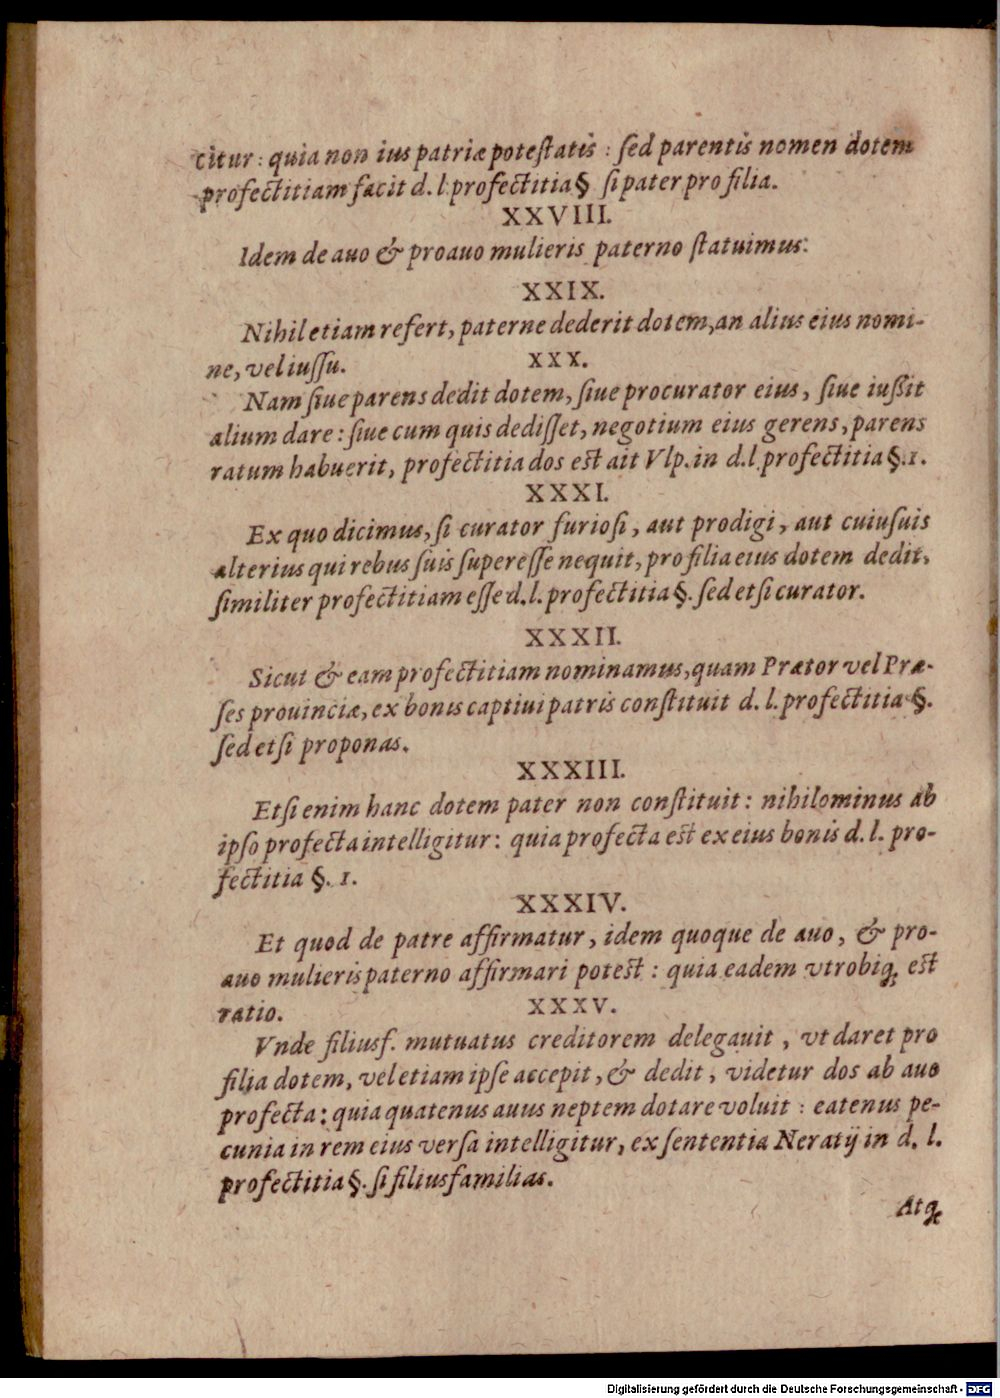 citur: quia non ius patriæ potestatis: sed parentis nomen dotem
profectitiam facit d. l profectitia § si pater pro filia.
XXVIII.
Idem de auo & proauo mulieris paterno statuimus.
XXIX.
Nihil etiam refert, paterne dederit dotem, an alius eius nomi-
ne, vel iussu.
XXX.
Nam siue parens dedit dotem, siue procurator eius, siue iußit
alium dare: siue cum quis dedisset, negotium eius gerens, parens
ratum habuerit, profectitia dos est ait Vlp. in d. l profectitia §. 1.
XXXI.
Ex quo dicimus, si curator furiosi, aut prodigi, aut cuiusuis
alterius qui rebus suis superesse nequit, pro filia eius dotem dedit,
similiter profectitiam esse d. l. profectitia §. sed etsi curator.
XXXII.
Sicut & eam profectitiam nominamus, quam Prætor vel Præ-
ses prouinciæ, ex bonis captiui patris constituit d. l. profectitia §.
sed etsi proponas.
XXXIII.
Etsi enim hanc dotem pater non constituit: nihilominus ab
ipso profecta intelligitur: quia profecta est ex eius bonis d. l. pro-
fectitia §. 1.
XXXIV.
Et quod de patre affirmatur, idem quoque de auo, & pro-
auo mulieris paterno affirmari potest: quia eadem vtrobiq; est
ratio.
XXXV.
Vnde filiusf. mutuatus creditorem delegauit, vt daret pro
filia dotem, vel etiam ipse accepit, & dedit, videtur dos ab auo
profecta: quia quatenus auus neptem dotare voluit: eatenus pe-
cunia in rem eius versa intelligitur, ex sententia Neratij in d. l.
profectitia §. si filiusfamilias.
Atq;
Digitalisierung gefördert durch die Deutsche Forschungsgemeinschaft - DFG